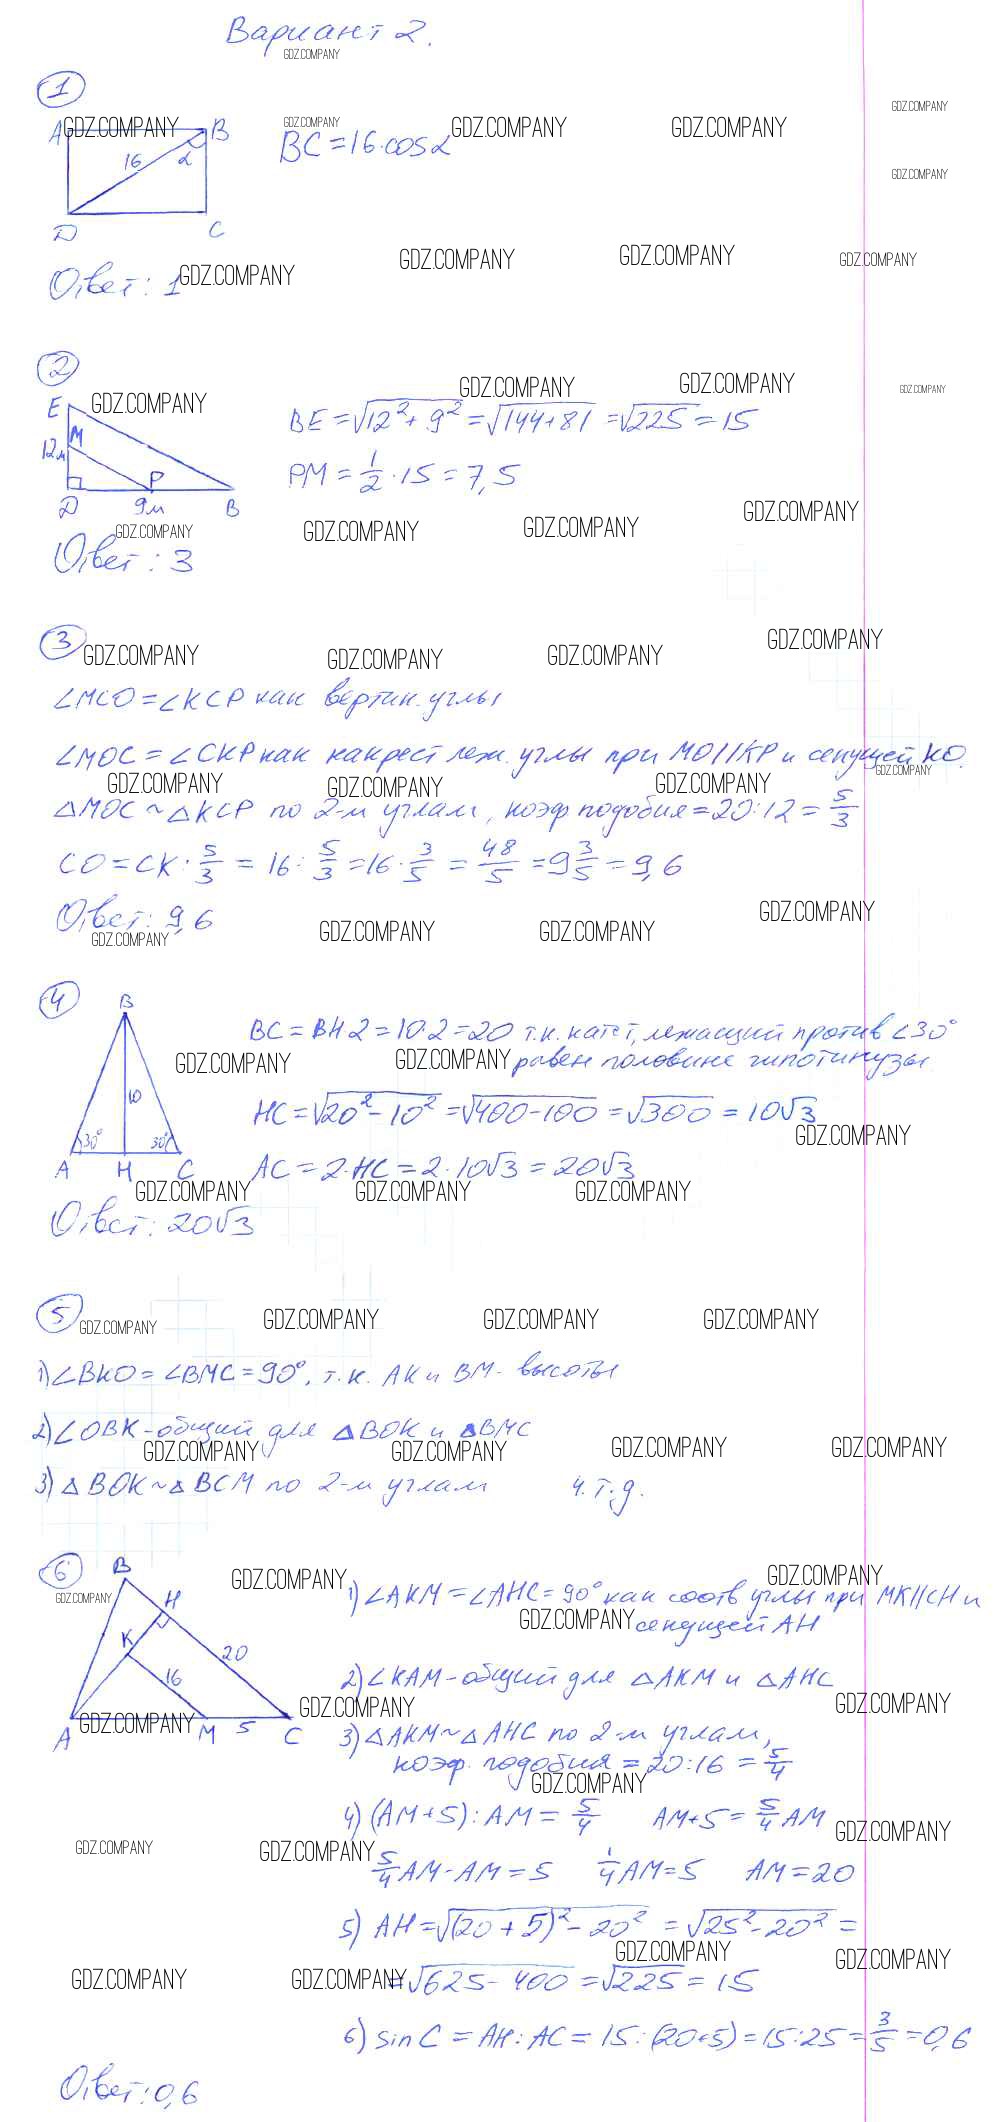 Вариант 2.
1
A B
16 α
D C
BC = 16·cosα
Ответ: 1
2
E
M
12м
P
D 9м B
BE = √(12² + 9²) = √(144+81) = √225 = 15
PM = 1/2 · 15 = 7,5
Ответ: 3
3
∠MCO = ∠KCP как вертик. углы
∠MOC = ∠CKP как накрест леж. углы при MO||KP и секущей KO.
△MOC ~ △KCP по 2-м углам, коэф подобия = 20:12 = 5/3
CO = CK · 5/3 = 16 : 5/3 = 16 · 3/5 = 48/5 = 9 3/5 = 9,6
Ответ: 9,6
4
B
10
30° 30°
A H C
BC = BH·2 = 10·2 = 20 т.к. катет, лежащий против ∠30°
равен половине гипотинузы.
HC = √(20² - 10²) = √(400-100) = √300 = 10√3
AC = 2·HC = 2·10√3 = 20√3
Ответ: 20√3
5
1) ∠BKO = ∠BMC = 90°, т.к. AK и BM - высоты
2) ∠OBK - общий для △BOK и △BMC
3) △BOK ~ △BCM по 2-м углам ч.т.д.
6
B
H
K
20
16
A M 5 C
1) ∠AKM = ∠AHC = 90° как соотв углы при MK||CH и
секущей AH
2) ∠KAM - общий для △AKM и △AHC
3) △AKM ~ △AHC по 2-м углам,
коэф. подобия = 20:16 = 5/4
4) (AM+5):AM = 5/4 AM+5 = 5/4 AM
5/4 AM - AM = 5 1/4 AM = 5 AM = 20
5) AH = √((20+5)² - 20²) = √(25² - 20²) =
= √(625 - 400) = √225 = 15
6) sin C = AH:AC = 15:(20+5) = 15:25 = 3/5 = 0,6
Ответ: 0,6
GDZ.COMPANY